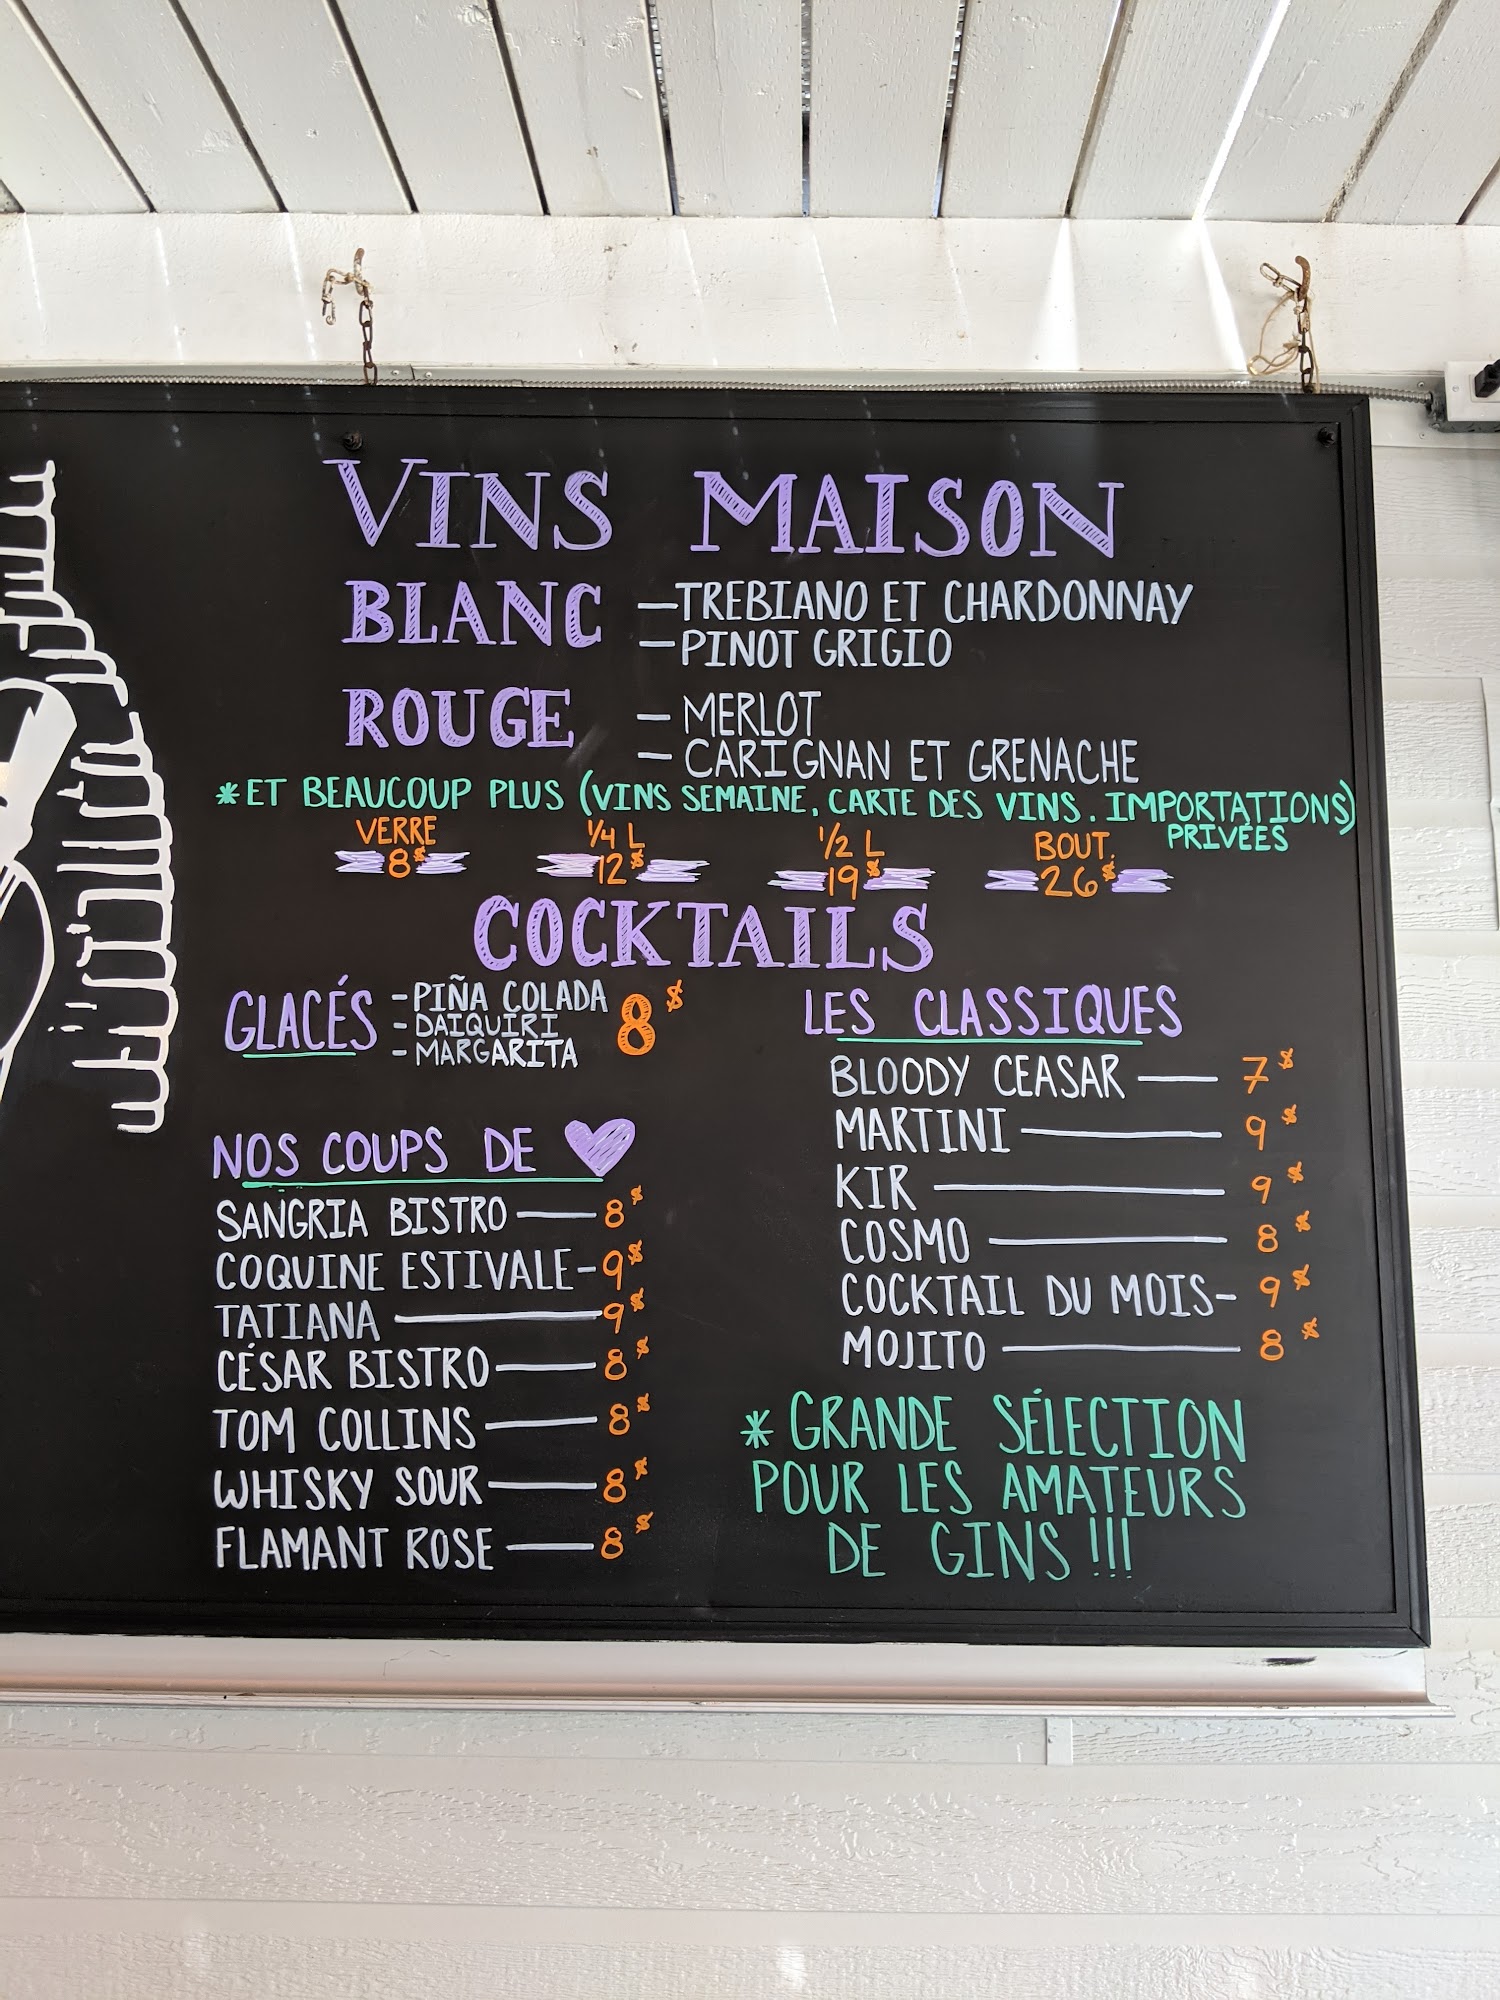 VINS MAISON
BLANC —TREBIANO ET CHARDONNAY
—PINOT GRIGIO
ROUGE — MERLOT
— CARIGNAN ET GRENACHE
*ET BEAUCOUP PLUS (VINS SEMAINE, CARTE DES VINS. IMPORTATIONS)
PRIVÉES
VERRE 1/4 L 1/2 L BOUT.
8$ 12$ 19$ 26$
COCKTAILS
GLACÉS -PIÑA COLADA 8$
- DAIQUIRI
- MARGARITA
NOS COUPS DE
SANGRIA BISTRO — 8$
COQUINE ESTIVALE - 9$
TATIANA — 9$
CÉSAR BISTRO — 8$
TOM COLLINS — 8$
WHISKY SOUR — 8$
FLAMANT ROSE — 8$
LES CLASSIQUES
BLOODY CEASAR — 7$
MARTINI — 9$
KIR — 9$
COSMO — 8$
COCKTAIL DU MOIS - 9$
MOJITO — 8$
* GRANDE SÉLECTION
POUR LES AMATEURS
DE GINS!!!